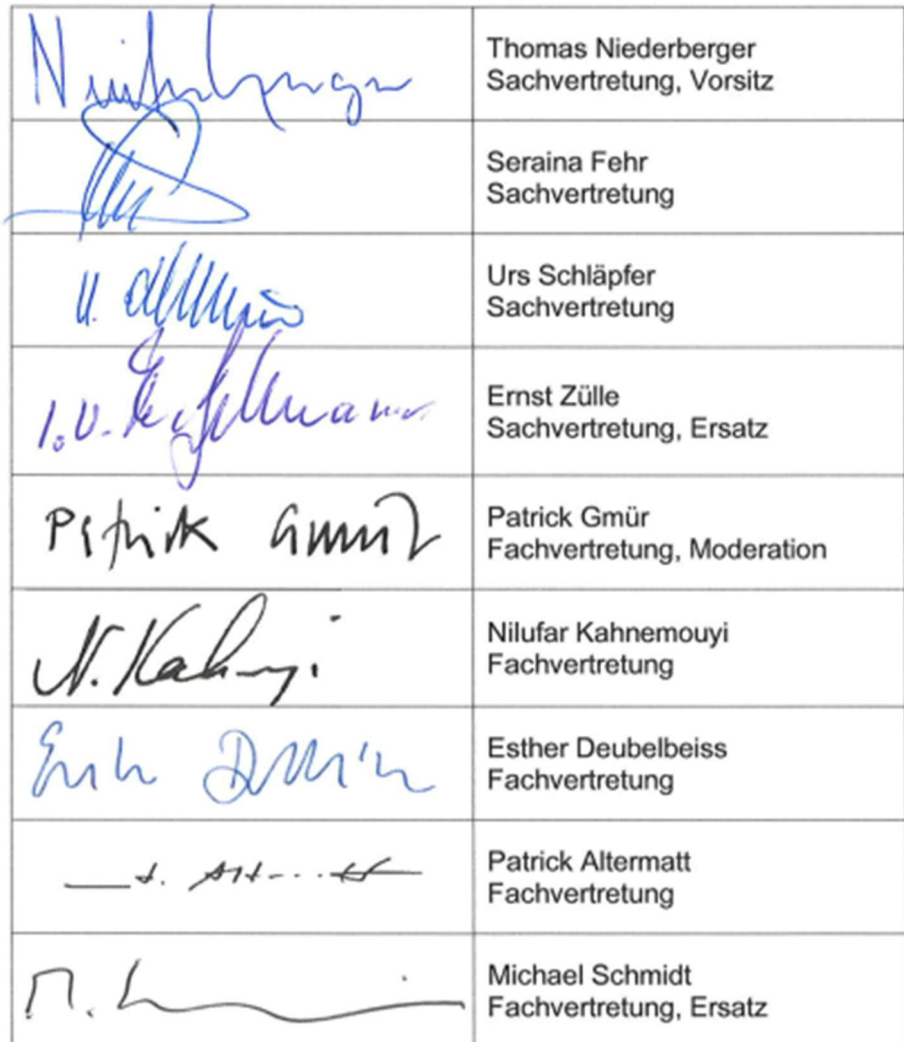 Thomas Niederberger
Sachvertretung, Vorsitz
Seraina Fehr
Sachvertretung
Urs Schläpfer
Sachvertretung
I.V.
Ernst Zülle
Sachvertretung, Ersatz
Patrick Gmür
Patrick Gmür
Fachvertretung, Moderation
N.
Nilufar Kahnemouyi
Fachvertretung
Esther Deubelbeiss
Fachvertretung
Patrick Altermatt
Fachvertretung
M.
Michael Schmidt
Fachvertretung, Ersatz